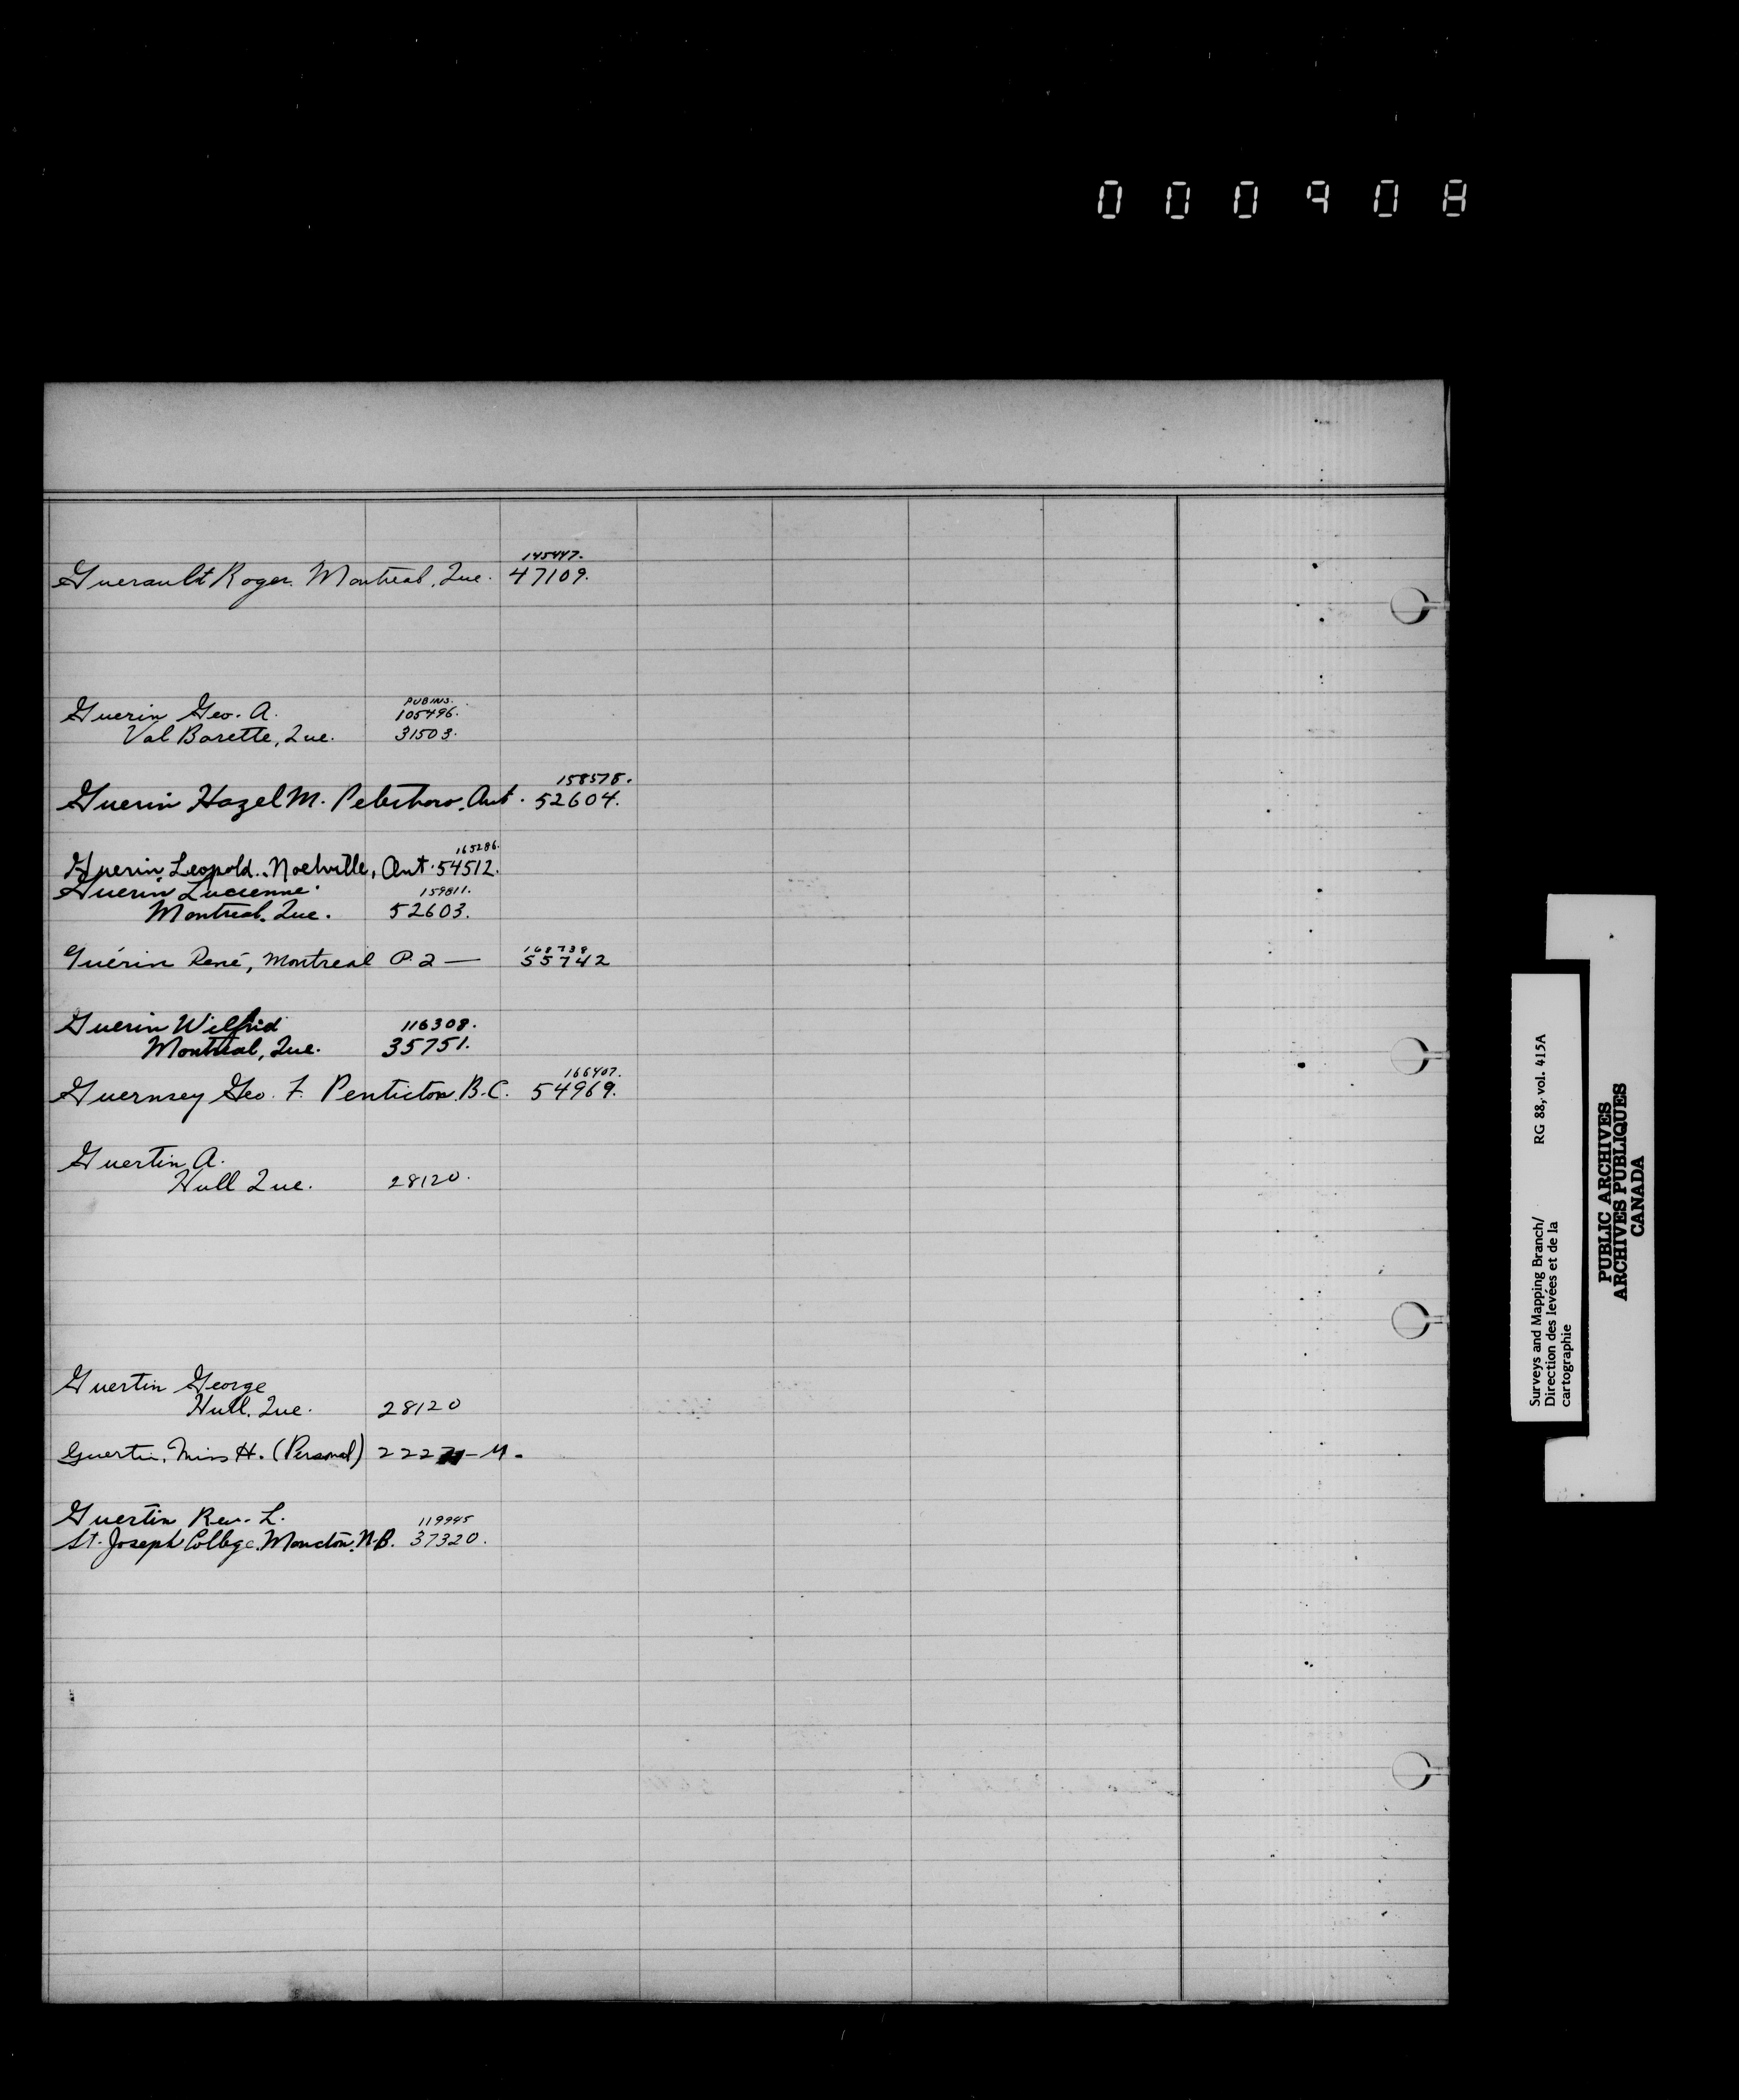 000908
145447.
Guerault Roger. Montreal, Que. 47109.
PUBINS.
Guerin Geo. A. 105496.
Val Barette, Que. 31503.
158578.
Guerin Hazel M. Peterboro, Ont. 52604.
165286.
Guerin, Leopold. Noelville, Ont. 54512.
Guerin Lucienne. 159811.
Montreal, Que. 52603.
168738
Guérin René, Montreal P.Q — 55742
Guerin Wilfrid 116308.
Montreal, Que. 35751.
166407.
Guernsey Geo. F. Penticton. B.C. 54969.
Guertin A.
Hull Que. 28120.
Guertin George
Hull, Que. 28120
Guertin, Miss H. (Personal) 222 - M.
Guertin Rev. L. 119945
St. Joseph College. Moncton. N.B. 37320.
Surveys and Mapping Branch/ RG 88, vol. 415A
Direction des levées et de la
cartographie
PUBLIC ARCHIVES
ARCHIVES PUBLIQUES
CANADA